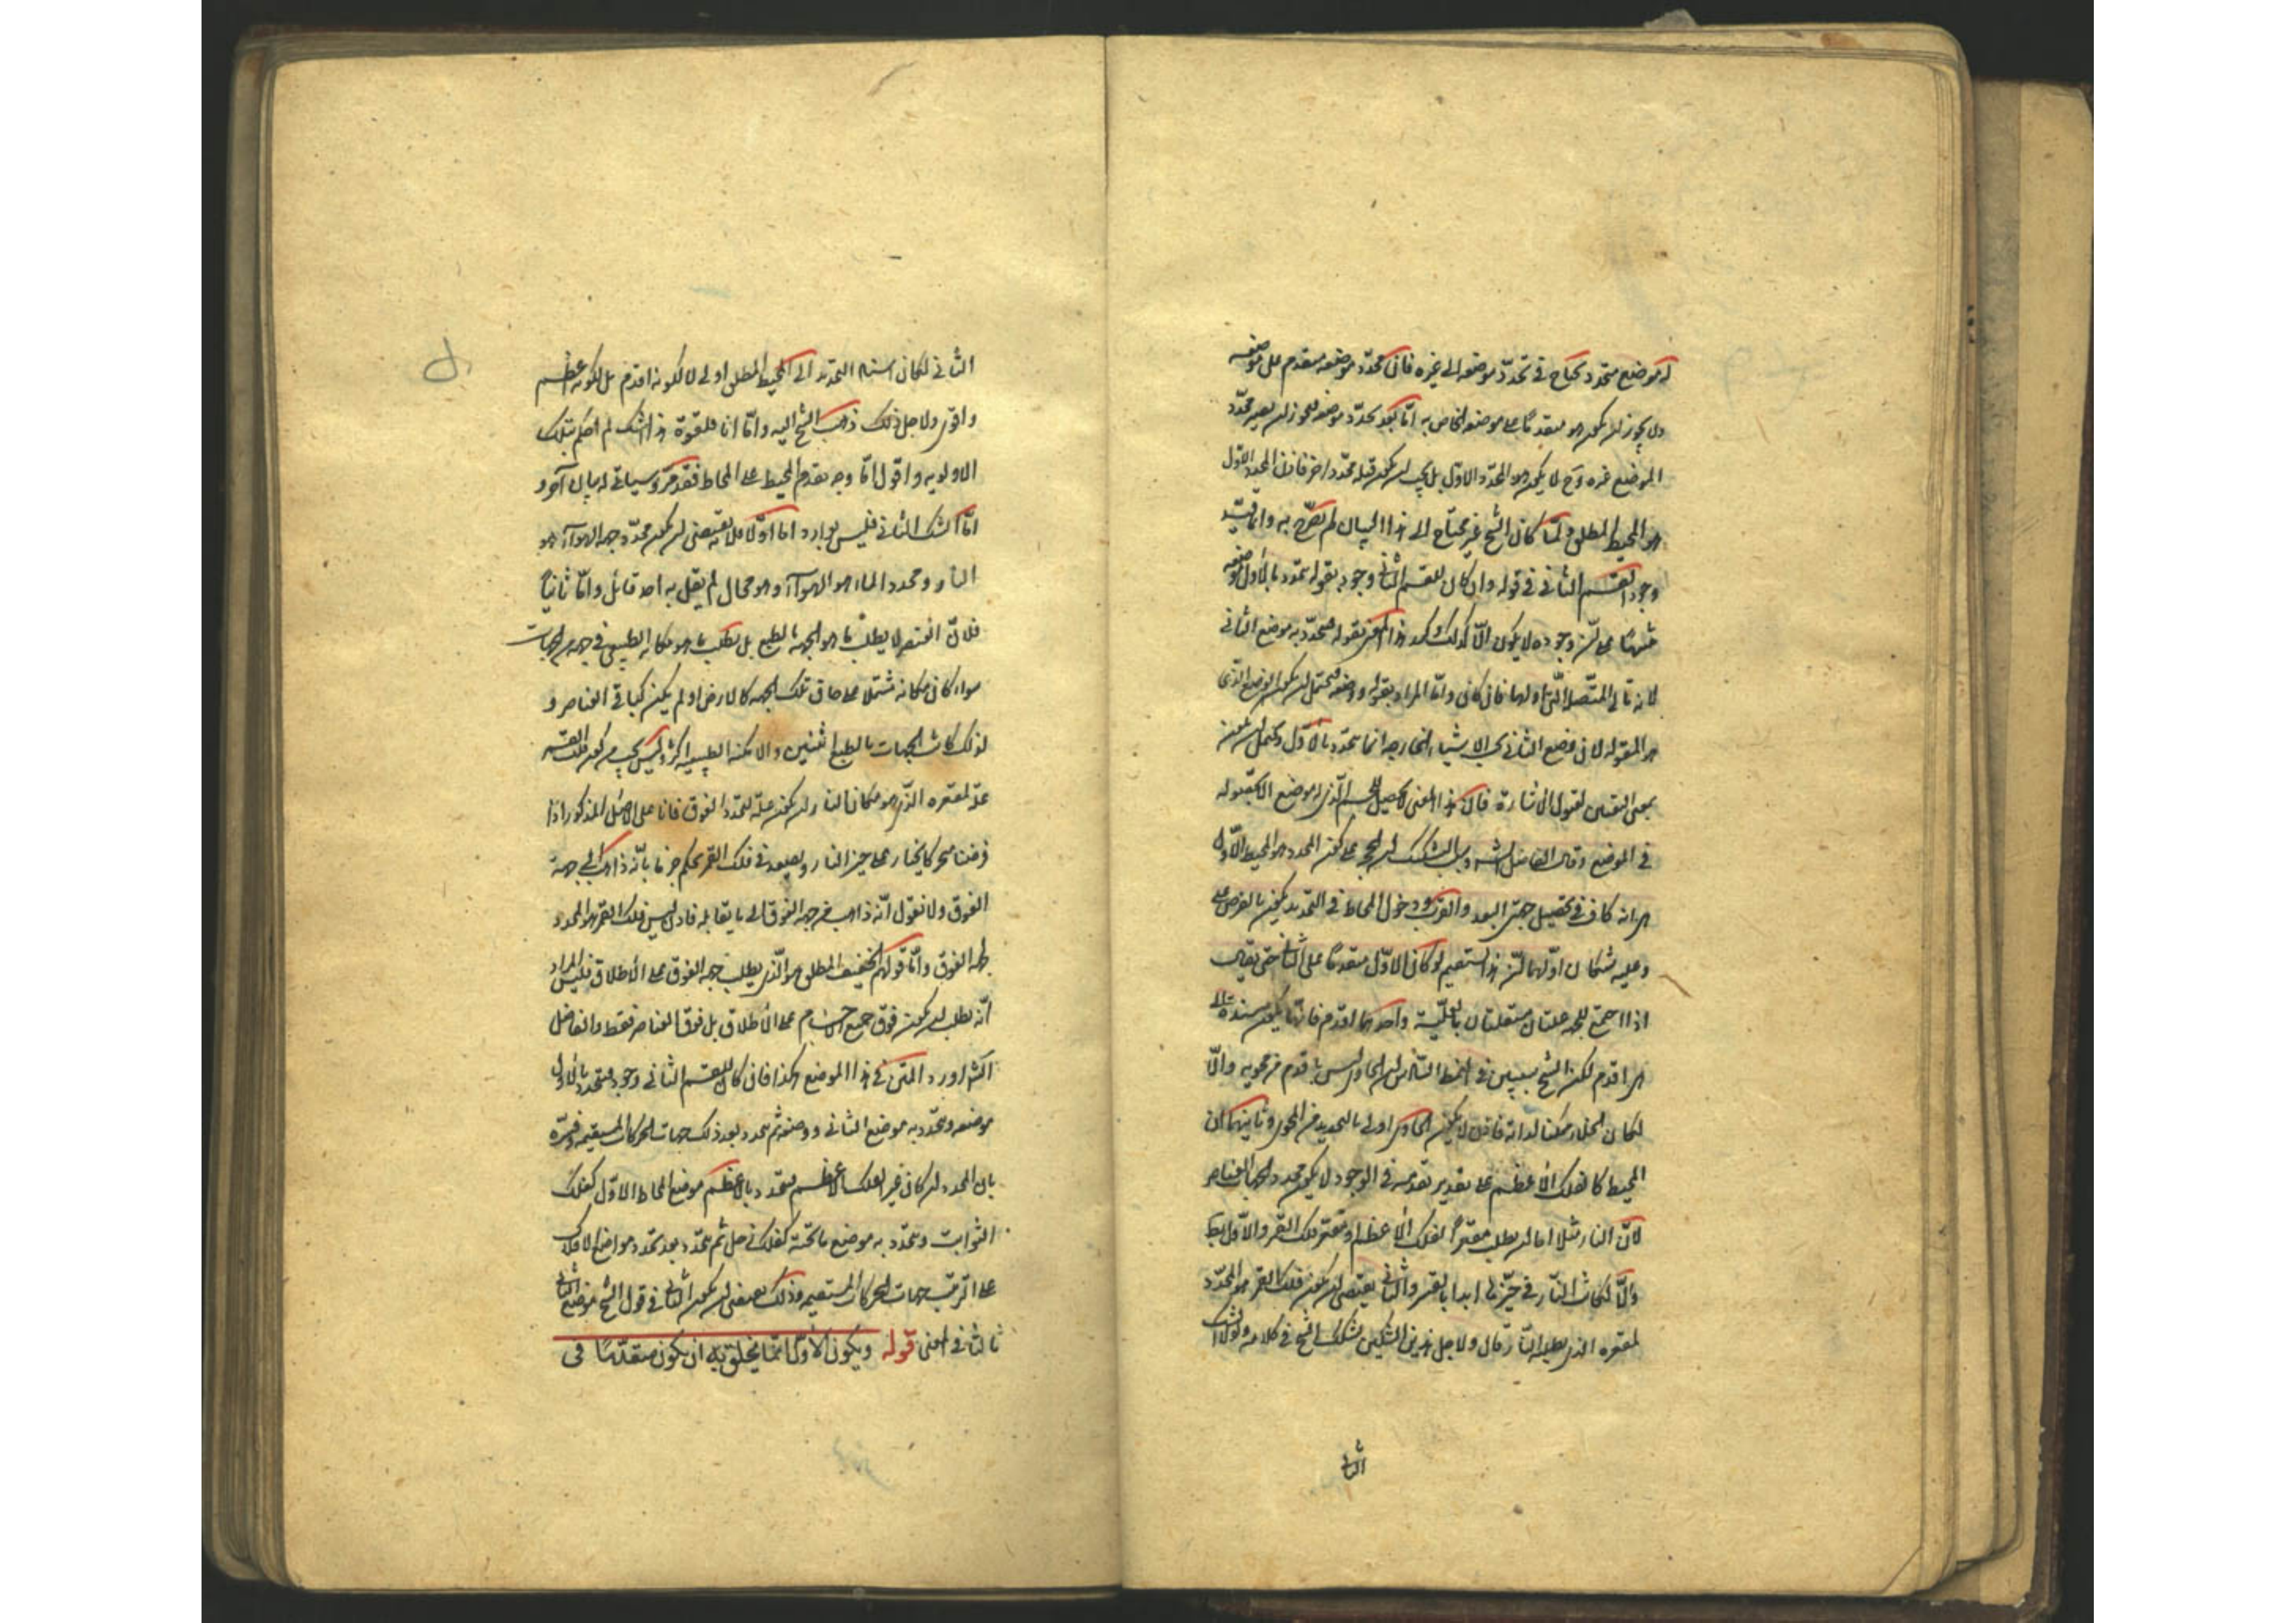 له موضع متحدد يحتاج في تحدد موضعه الى غيره فان محدد موضعه متقدم على موضعه
ولا يجوز ان يكون هو متقدما على موضعه الخاص به اما بعد تحدد موضعه فيجوز ان يصير محدد
الموضع غيره وح لا يكون هو المحدد الاول بل يجب ان يكون قبله محدد اخر فاذن المحدد الاول
هو المحيط المطلق ولما كان الشيخ غير محتاج الى هذا البيان لم يصرح به وانما قيد
وجود القسم الثاني في قوله وان كان للقسم الثاني وجود بقوله يتحدد بالاول موضعه
منبها على ان وجوده لا يكون الا كذلك واكد هذا المعنى بقوله فيتحدد به موضع الثاني
لانه تالي المتصلة التي اولها فان كان واما المراد بقوله ووضعه فيحتمل ان يكون الوضع الذي
هو المقولة لان وضع الثاني بحسب الاشياء الخارجة انما يتحدد بالاول ويحتمل ان يكون
بمعنى التعين لقبول الاشارة فان هذا المعنى لا يحصل للجسم الذي له موضع الا بحصوله
في الموضع وقال الفاضل الشارح وبالتشكك ان الحجة على كون المحدد هو المحيط الاول
هي انه كاف في تحصيل جهتي البعد والقرب ودخول المحاط في التحديد يكون بالعرض
وعليه شكان اولهما ان هذا يستقيم لو كان الاول متقدما على الثاني حتى يقال
اذا اجتمع للجهة علتان مستقلتان بالعلية واحدهما اقدم فانها يكون مستندة الى
ما هي اقدم لكن الشيخ سيبين في النمط السادس ان الحاوي ليس باقدم من محويه والا
لكان الخلاء ممكنا لذاته فاذن لا يكون الحاوي اولى بالتحديد من المحوي وثانيهما ان
المحيط كالفلك الاعظم على تقدير تقدمه في الوجود لا يكون محددا لجهات العناصر
لان النار مثلا اما ان يطلب مقعر الفلك الاعظم او مقعر فلك القمر والاول بط
والا لكانت النار في حيزها ابدا بالقسر والثاني يقتضي ان يكون فلك القمر هو المحدد
لمقعره الذي يطلبه النار قال ولاجل هذين الشكين تشكك الشيخ في كلامه ولولا الشك
الثاني
الثاني لكان اسناد التحديد الى المحيط المطلق اولى لا لكونه اقدم بل لكونه اعظم
واقوى ولاجل ذلك ذهب الشيخ اليه واما انا فلقوة هذا الشك لم احكم بتلك
الاولوية واقول اما وجه تقدم المحيط على المحاط فقد مر وسياتي له بيان آخر و
اما الشك الثاني فليس بوارد اما اولا فلانه يقتضي ان يكون محدد جهة الهواء هو
النار ومحدد الماء هو الهواء وهو محال لم يقل به احد قائل واما ثانيا
فلان العنصر لا يطلب ما هو الجهة بالطبع بل يطلب ما هو مكانه الطبيعي في جهة من الجهات
سواء كان مكانه مشتملا على حاق تلك الجهة كالارض او لم يكن كباقي العناصر و
لذلك كانت الجهات بالطبع اثنتين والامكنة الطبيعية اكثر وليس يجب من كون فلك القمر
علة لمقعره الذي هو مكان النار ان يكون علة لتحدد الفوق فانا على الاصل المذكور اذا
فرضنا متحركا يجتاز على حيز النار ويصعد في فلك القمر نحكم جزما بانه ذاهب الى جهة
الفوق ولا نقول انه ذاهب من جهة الفوق الى ما يقابله فاذن ليس فلك القمر هو المحدد
جهة الفوق واما قولهم الخفيف المطلق هو الذي يطلب جهة الفوق على الاطلاق فليس المراد
انه يطلب ان يكون فوق جميع الاجسام على الاطلاق بل فوق العناصر فقط والفاضل
الشارح اورد المتن في هذا الموضع هكذا فان كان للقسم الثاني وجود فيتحدد بالاول
موضعه ويتحدد به موضع الثاني ووضعه ثم يتحدد بعد ذلك جهات الحركات المستقيمة وفسره
بان المحدد ان كان غير الفلك الاعظم فيتحدد بالاعظم موضع المحاط الاول كفلك
الثوابت ويتحدد به موضع ما تحته كفلك زحل ثم يتحدد بعد تحدد مواضع الافلاك
على الترتيب جهات الحركات المستقيمة وذلك يقتضي ان يكون الثاني في قول الشيخ موضع الثاني
ثالثا في المعنى قوله ويكون الاول انما يخلق به ان يكون متقدما في